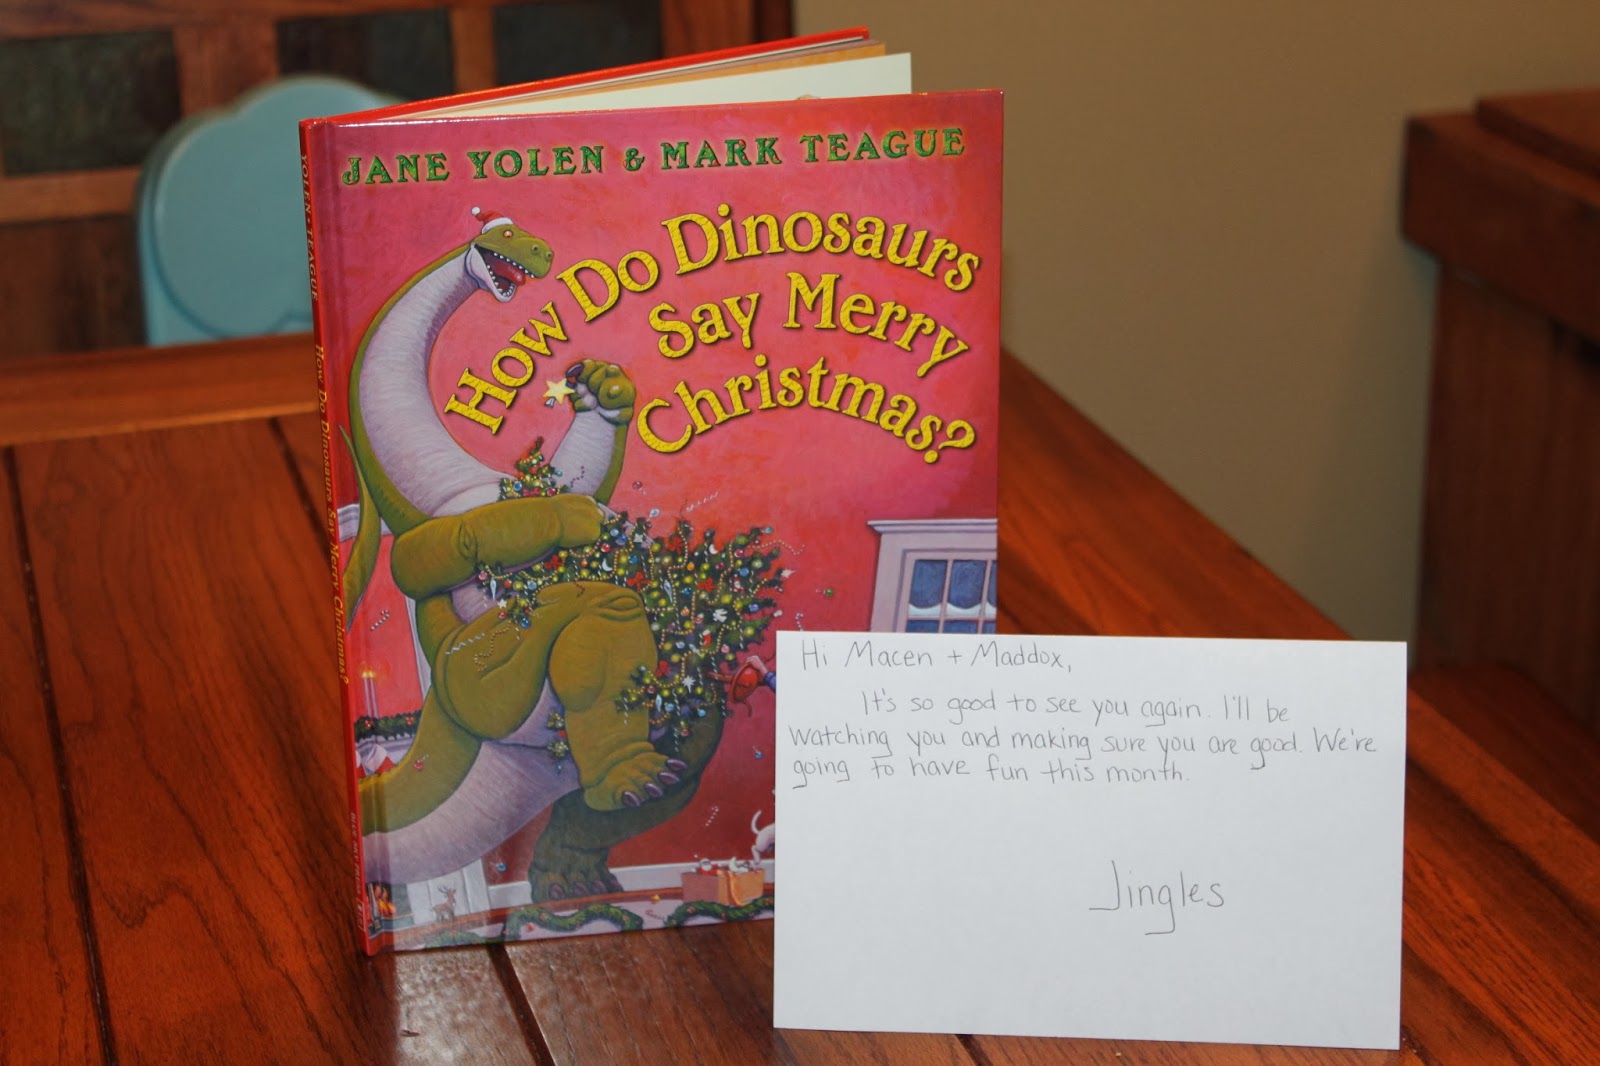 JANE YOLEN & MARK TEAGUE
How Do Dinosaurs
Say Merry
Christmas?
YOLEN • TEAGUE
How Do Dinosaurs Say Merry Christmas?
Hi Macen + Maddox,
It's so good to see you again. I'll be
watching you and making sure you are good. We're
going to have fun this month.
Jingles